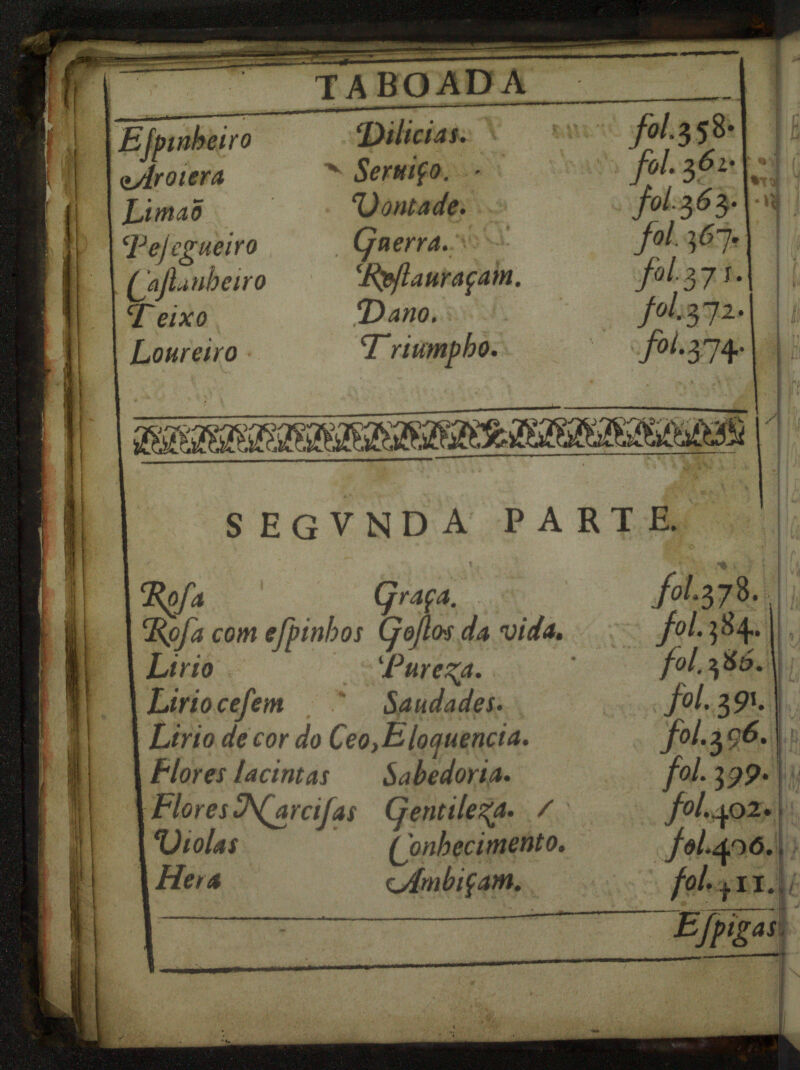 TABOADA
Eſpinheiro Dilicias. fol.358.
Aroiera Seruiço. fol.362.
Limaõ Vontade. fol.363.
Peſegueiro Guerra. fol.367.
Caſtanheiro Reſtauraçam. fol.371.
Teixo Dano. fol.372.
Loureiro Triumpho. fol.374.
SEGVNDA PARTE.
Roſa Graça. fol.378.
Roſa com eſpinhos Goſtos da vida. fol.384.
Lirio Pureza. fol.386.
Lirio ceſem Saudades. fol.391.
Lirio de cor do Ceo, Eloquencia. fol.396.
Flores Iacintas Sabedoria. fol.399.
Flores Narciſas Gentileza. fol.402.
Violas Conhecimento. fol.406.
Hera Ambiçam. fol.411.
Eſpigas